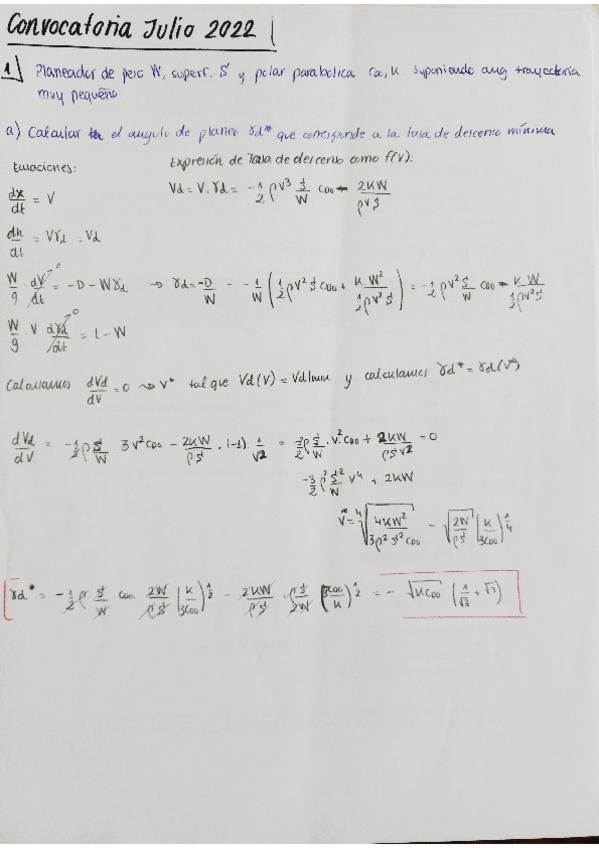 Convocatoria Julio 2022
1 Planeador de peso W, superf. S y polar parabolica CDO, K. suponiendo ang trayectoria
muy pequeño
a) Calcular el angulo de planeo γd* que corresponde a la tasa de descenso mínima
Ecuaciones:
Expresión de Tasa de descenso como f(V):
dx/dt = V
Vd = V·γd = -1/2 ρV³ S/W CDO - 2KW/ρVS
dh/dt = Vγd = Vd
W/g dV/dt →0 = -D - Wγd → γd = -D/W = -1/W (1/2 ρV² S CDO + K W²/(1/2 ρV² S)) = -1/2 ρV² S/W CDO - K W/(1/2 ρV² S)
W/g · V dγd/dt →0 = L - W
Calculamos dVd/dV = 0 → V* tal que Vd(V) = Vd|min y calculamos γd* = γd(V*)
dVd/dV = -1/2 ρ S/W · 3V² CDO - 2KW/ρS · (-1) · 1/V² = -3/2 ρ S/W · V² CDO + 2KW/ρSV² = 0
-3/2 ρ² S²/W V⁴ + 2KW
V* = ⁴√(4KW²/3ρ²S²CDO) = √(2W/ρS) (K/3CDO)^1/4
γd* = -1/2 ρ S/W CDO · 2W/ρS (K/3CDO)^1/2 - 2KW/ρS · ρS/2W (3CDO/K)^1/2 = -√(KCDO) (1/√3 + √3)